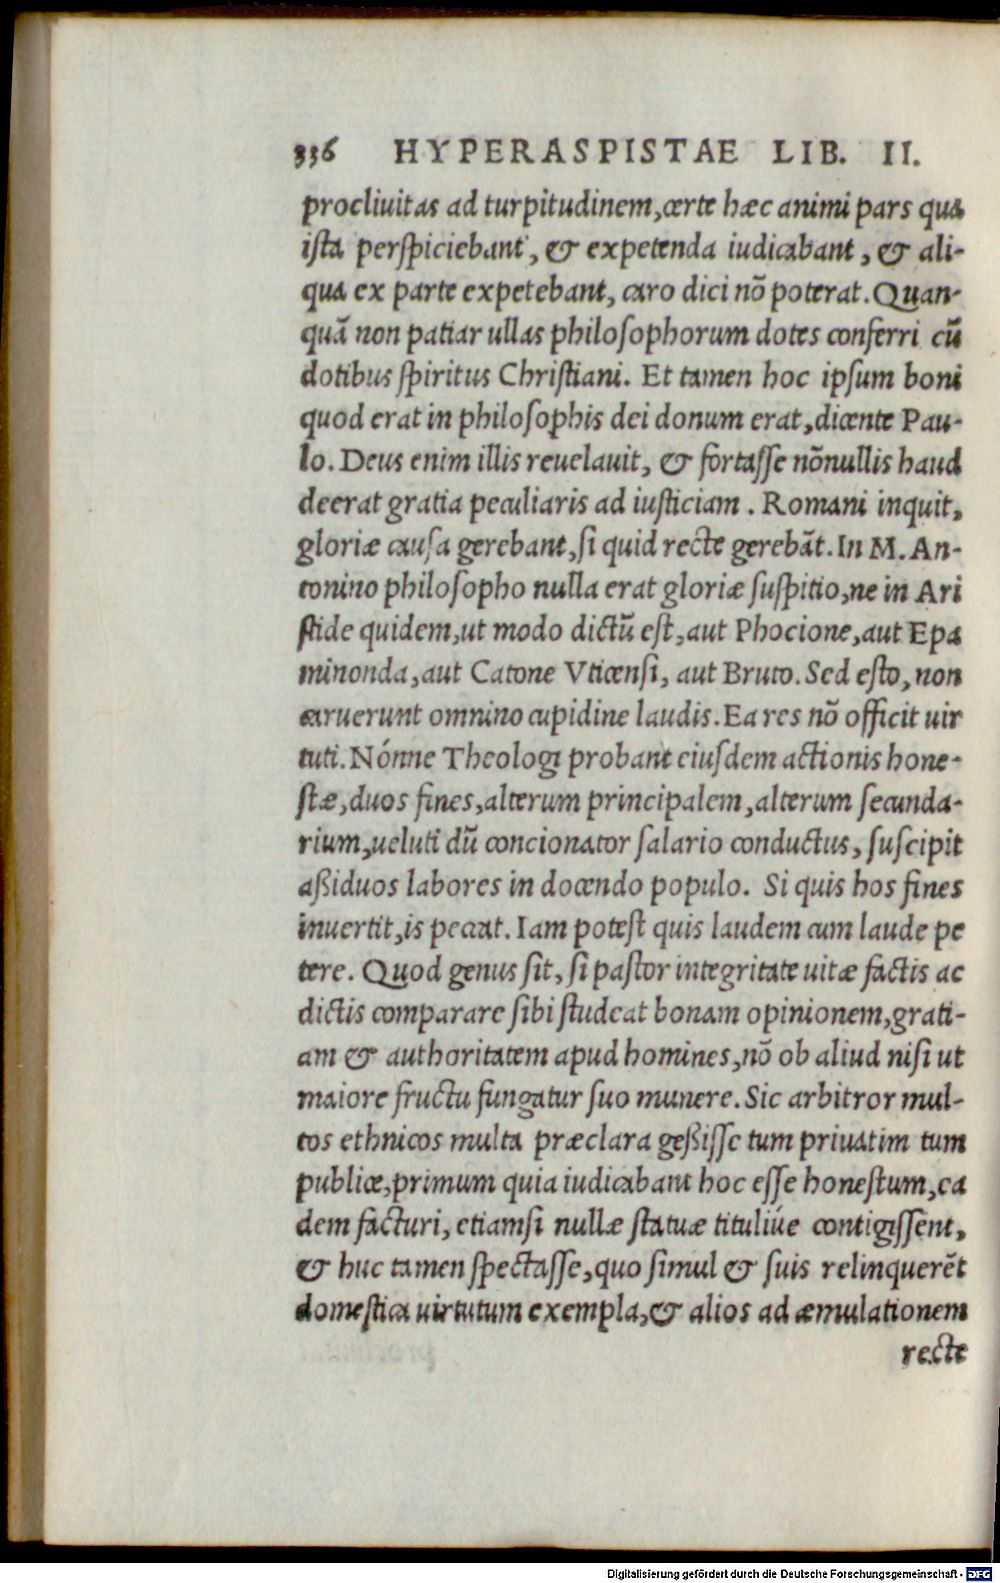 336 HYPERASPISTAE LIB. II.
procliuitas ad turpitudinem, certe hæc animi pars qua
ista perspiciebant, & expetenda iudicabant, & ali-
qua ex parte expetebant, caro dici nõ poterat. Quan-
quã non patiar ullas philosophorum dotes conferri cũ
dotibus spiritus Christiani. Et tamen hoc ipsum boni
quod erat in philosophis dei donum erat, dicente Pau-
lo. Deus enim illis reuelauit, & fortasse nõnullis haud
deerat gratia peculiaris ad iusticiam. Romani inquit,
gloriæ causa gerebant, si quid recte gerebãt. In M. An-
tonino philosopho nulla erat gloriæ suspitio, ne in Ari
stide quidem, ut modo dictũ est, aut Phocione, aut Epa
minonda, aut Catone Vticensi, aut Bruto. Sed esto, non
caruerunt omnino cupidine laudis. Ea res nõ officit uir
tuti. Nónne Theologi probant eiusdem actionis hone-
stæ, duos fines, alterum principalem, alterum secunda-
rium, ueluti dũ concionator salario conductus, suscipit
aßiduos labores in docendo populo. Si quis hos fines
inuertit, is peccat. Iam potest quis laudem cum laude pe
tere. Quod genus sit, si pastor integritate uitæ factis ac
dictis comparare sibi studeat bonam opinionem, grati-
am & authoritatem apud homines, nõ ob aliud nisi ut
maiore fructu fungatur suo munere. Sic arbitror mul-
tos ethnicos multa præclara geßisse tum priuatim tum
publice, primum quia iudicabant hoc esse honestum, ea
dem facturi, etiamsi nullæ statuæ tituliúe contigissent,
& huc tamen spectasse, quo simul & suis relinquerẽt
domestica uirtutum exempla, & alios ad æmulationem
recte
Digitalisierung gefördert durch die Deutsche Forschungsgemeinschaft - DFG